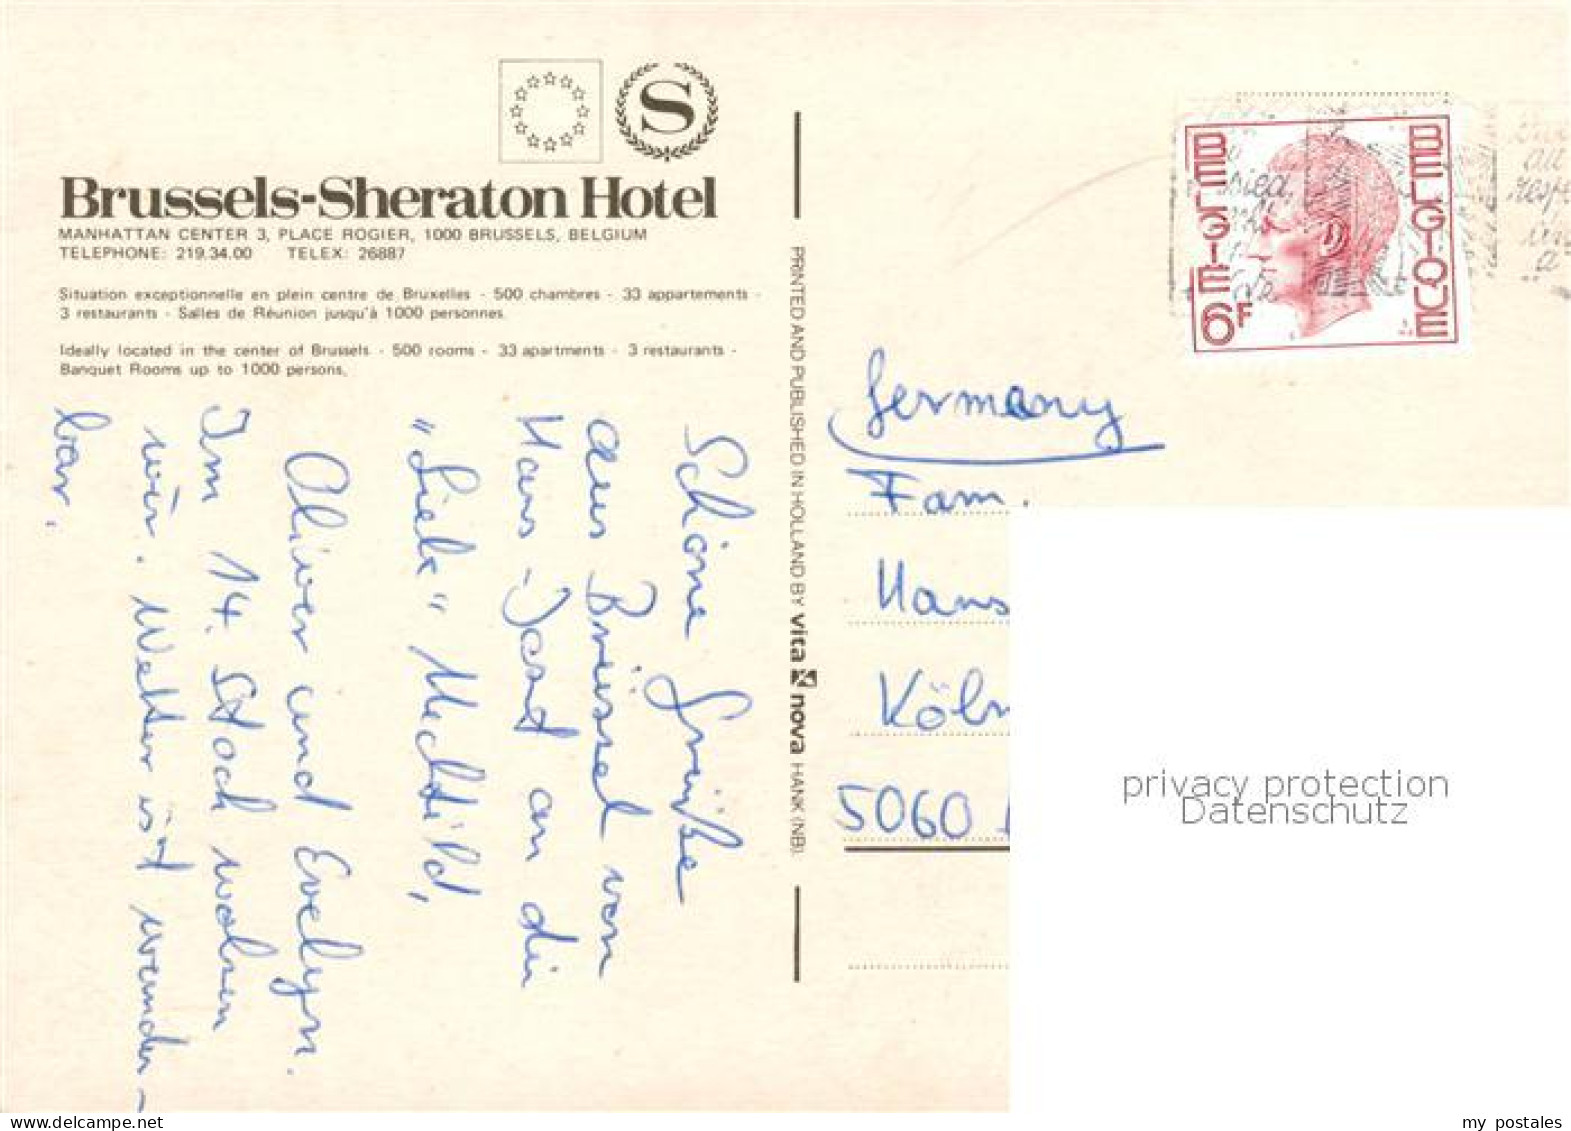 S
Brussels-Sheraton Hotel
MANHATTAN CENTER 3, PLACE ROGIER, 1000 BRUSSELS, BELGIUM
TELEPHONE: 219.34.00 TELEX: 26887
Situation exceptionnelle en plein centre de Bruxelles - 500 chambres - 33 appartements -
3 restaurants - Salles de Réunion jusqu'à 1000 personnes.
Ideally located in the center of Brussels - 500 rooms - 33 apartments - 3 restaurants -
Banquet Rooms up to 1000 persons.
Schöne Grüße
aus Brüssel von
Hans-Jost an die
"Liebe" Mechtild,
Oliver und Evelyn.
Im 14. Stock wohnen
wir. Wetter ist wunder-
bar.
PRINTED AND PUBLISHED IN HOLLAND BY vita nova HANK (NB).
BELGIE BELGIQUE
6F
Germany
Fam.
Hans
Köln
5060
privacy protection
Datenschutz
www.delcampe.net
my postales